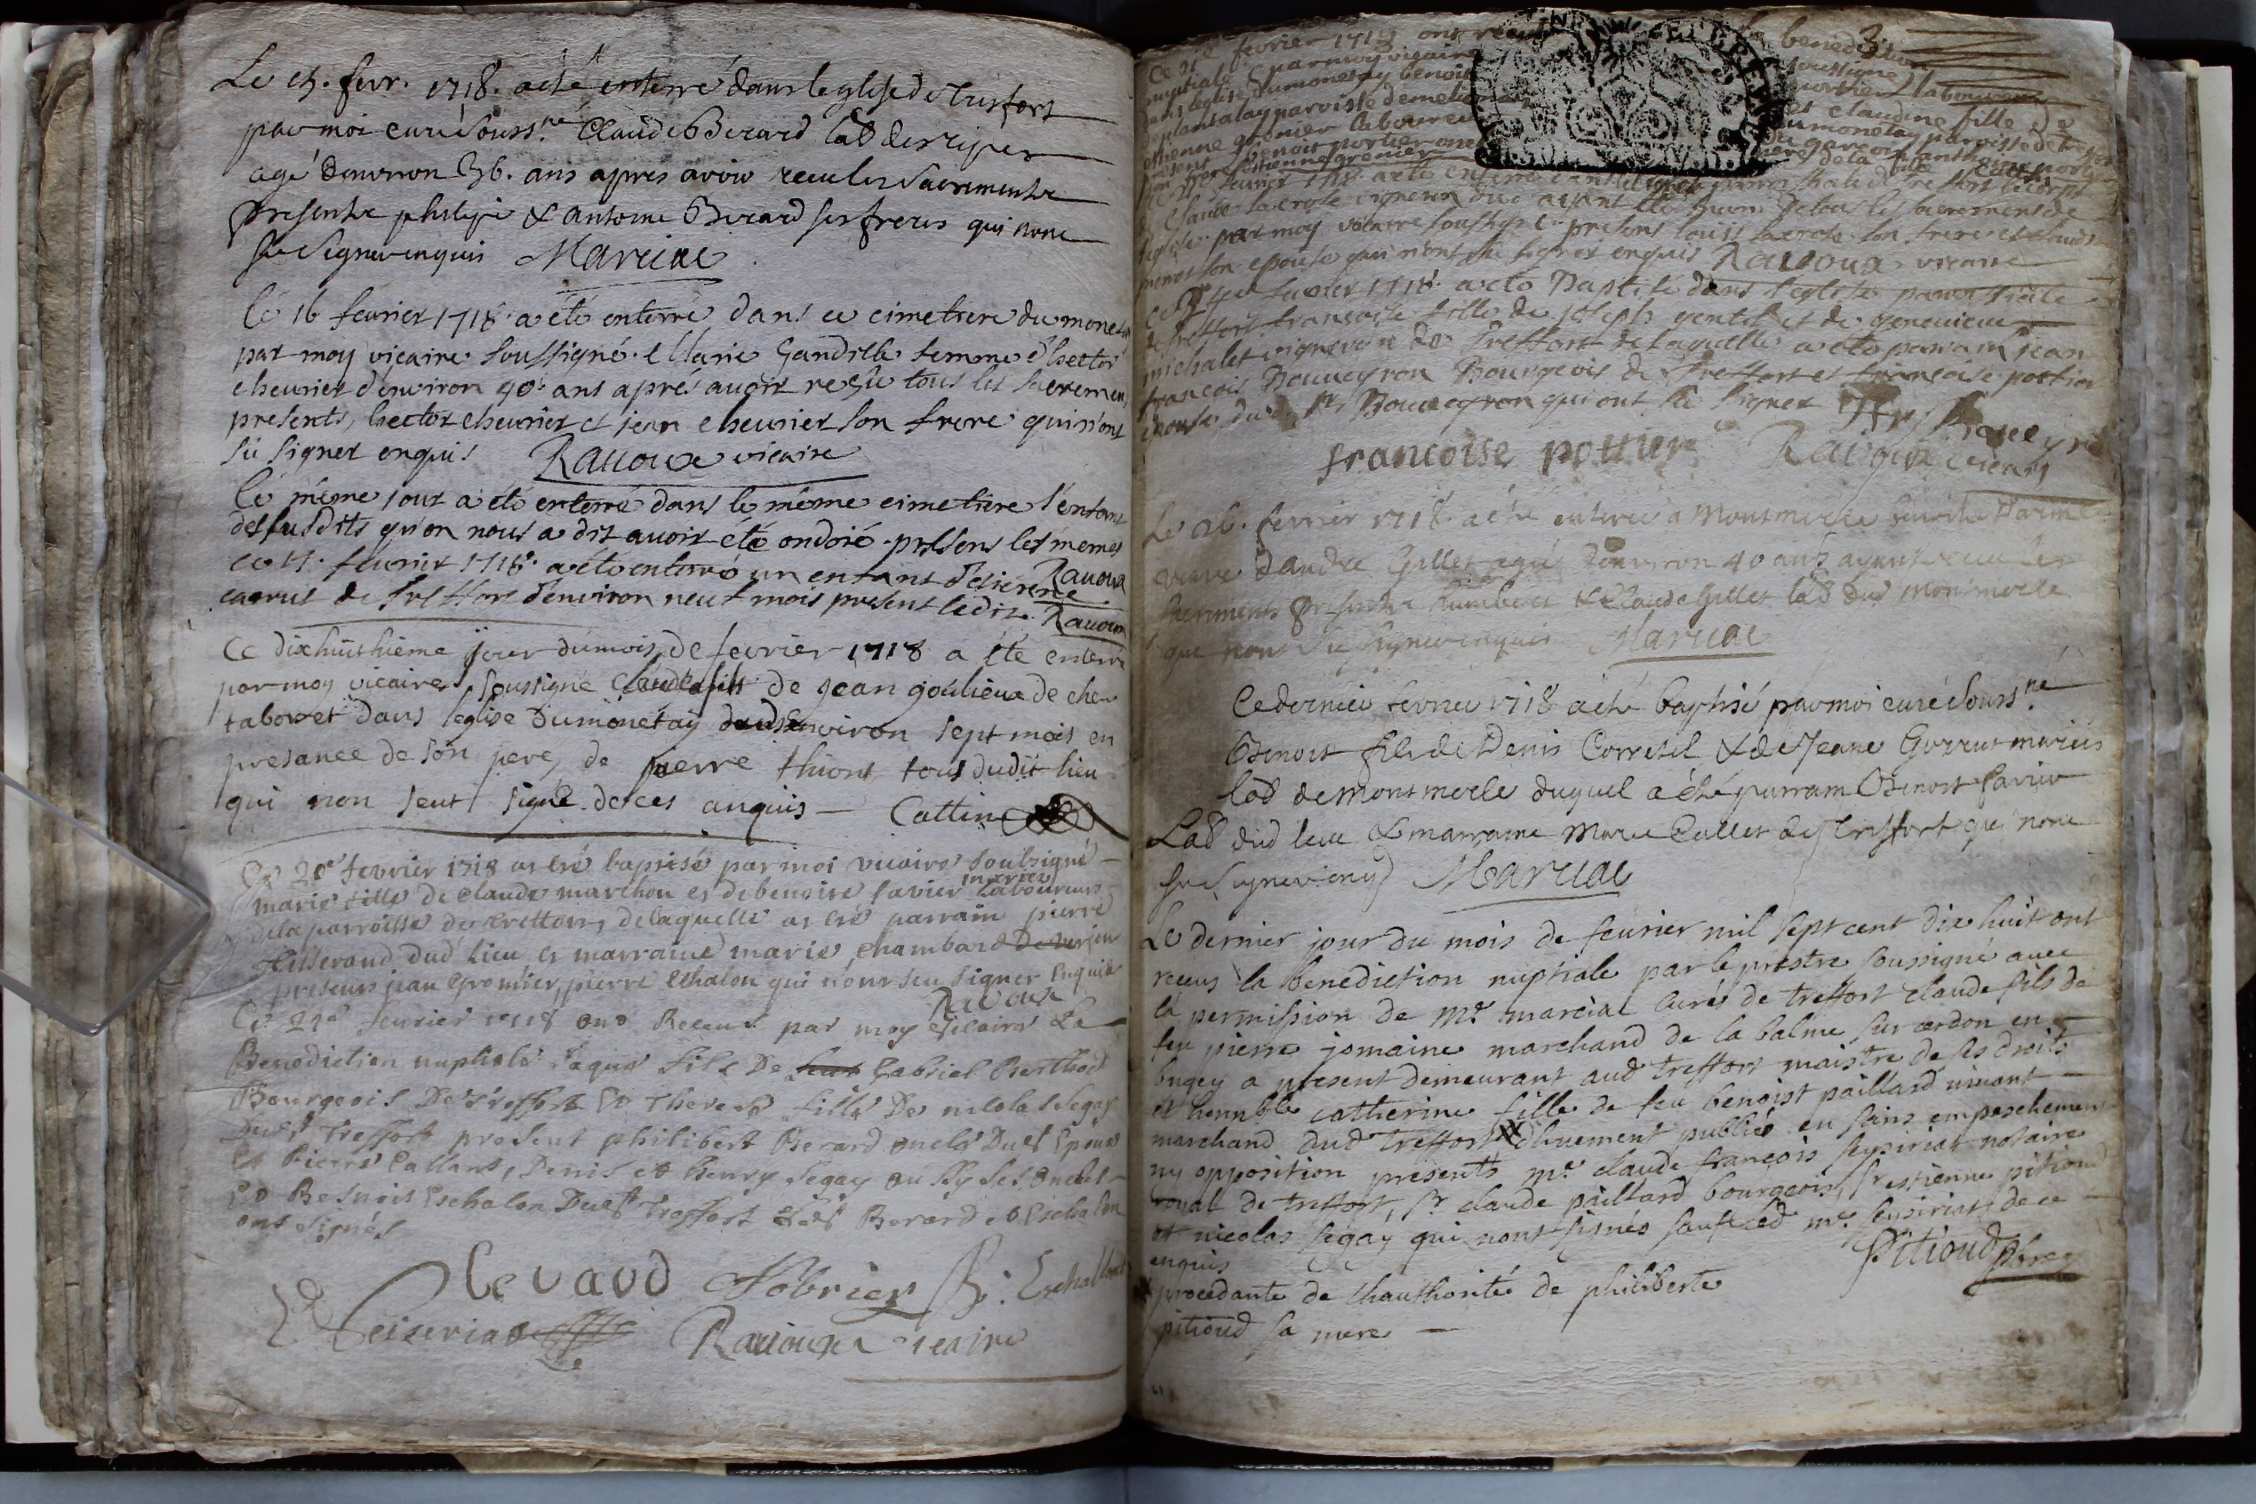 Le 15. fevr. 1718. a eté enterré dans leglise de Treffort
par moi curé souss.né Claude Berard lab des ripes
agé denviron 56. ans apres avoir receu les sacrements
presents philipe & antoine Berard ses freres qui nont
su signer enquis Marcial
le 16 fevrier 1718. a été enterré dans ce cimetiere du monetay
par moy vicaire soussigné. Marie Gandille femme d'hector
chevrier d'environ 40. ans aprés avoir reçû tous les sacremens
presents, hector chevrier et jean chevrier son frere qui n'ont
sû signer enquis Ravoux vicaire
le même jour a été enterré dans le même cimetiere l'enfant
des susdits qu'on nous a dit avoir été ondoié. presens les memes
Ravoux
ce 17. fevrier 1718. a été enterré un enfant d'etienne
carrut de treffort d'environ neuf mois present ledit. Ravoux
Ce dixhuithieme jour du mois de fevrier 1718 a été enterré
par moy vicaire soussigné Claude fils de jean goulieux de chen
tabouret dans l'église Dumonétay denviron sept mois en
presance de son pere, de pierre thiont tous dudit lieu
qui non seut signé. de ces anquis — Cattin
Ce 20e fevrier 1718 as eté baptisé par moi vicaire soubsigné
marie fille de claude marchon et de benoite favier mariez laboureurs
de la parroisse de treffort, de laquelle as eté parrain pierre
dud lieu et marraine marie chambard de verjon
presens jean Gromier, pierre Chalon qui n'ont seu signer Enquis
Ravoux
Ce 21e fevrier 1718 ons Receus par moy vicaire La
Benediction nuptiale Jaque fils De Gabriel Berthod
Bourgeois De treffort Et Therese fille De nicolas Segay
Dud treffort present philibert Berard oncle Dud Epoux
Et Pierre Callant, Denis et henry Segay aussy ses oncles
Et Benoit Eschalon Dud Treffort lesd Berard et Eschalon
ont signés
Eschallon
Ravoux vicaire
Ce fevrier 1718 ont receu la benediction
nuptiale par moy vicaire soussigné
dans l'eglise Dumonetay benoit portier laboureur
de plantalay paroisse de et claudine fille de
estienne grenier laboureur dumonetay paroisse de treffort
present benoit portier
son pere estienne grenier
fevrier 1718. a été enterré dans l'eglise parroissiale de treffort le corps
de claude lacroix vigneron aiant été muni de tous les sacremens de
l'eglise. par moy vicaire soussigné. presens louis lacroix son frere et claudine
son epouse qui n'ont sû signer enquis Ravoux vicaire
ce fevrier 1718. a été Baptisé dans l'eglise parroissiale
de treffort francoise fille de joseph gentil et de genevieve
michalet vigneron de Treffort de laquelle a été parrain jean
francois Bouveyron Bourgeois de Treffort et francoise portier
epouse dud sr Bouveyron qui ont sû signer
francoise portier Ravoux vicaire
Le 26. fevrier 1718. a été enterré a Montmerle
veuve dandre Gillet agé denviron 40 ans ayant receu les
sacrements presents humbert & Claude Gillet lab dud Montmerle
qui nont su signer enquis Marcial
Ce dernier fevrier 1718 a été baptisé par moi curé souss.né
Benoit fils de Denis Corretel & de Jeane Gorrut mariés
lab de Montmerle duquel a été parrain Benoit favier
Lab dud lieu & marraine Marie Cullet de Treffort qui nont
su signer enq. Marcial
Le dernier jour du mois de fevrier mil sept cent dix huit ont
receus la benediction nuptiale par le prestre soussigné avec
la permission de Mre marcial curé de treffort claude fils de
feu pierre jomaine marchand de la balme sur cerdon en
bugey a present demeurant aud treffort maistre de ses droits
et honnble catherine fille de feu benoist paillard vivant
marchand dud treffort X dhuement publiés eu sains empeschement
ny opposition presents me claude françois seysiriat notaire
royal de treffort, sr claude paillard bourgeois, sr estienne pitioud
et nicolas segay qui nont signés sauf led me seysiriat de ce
enquis Pitioud
X procedante de lhauthorité de philiberte
pitioud sa mere —